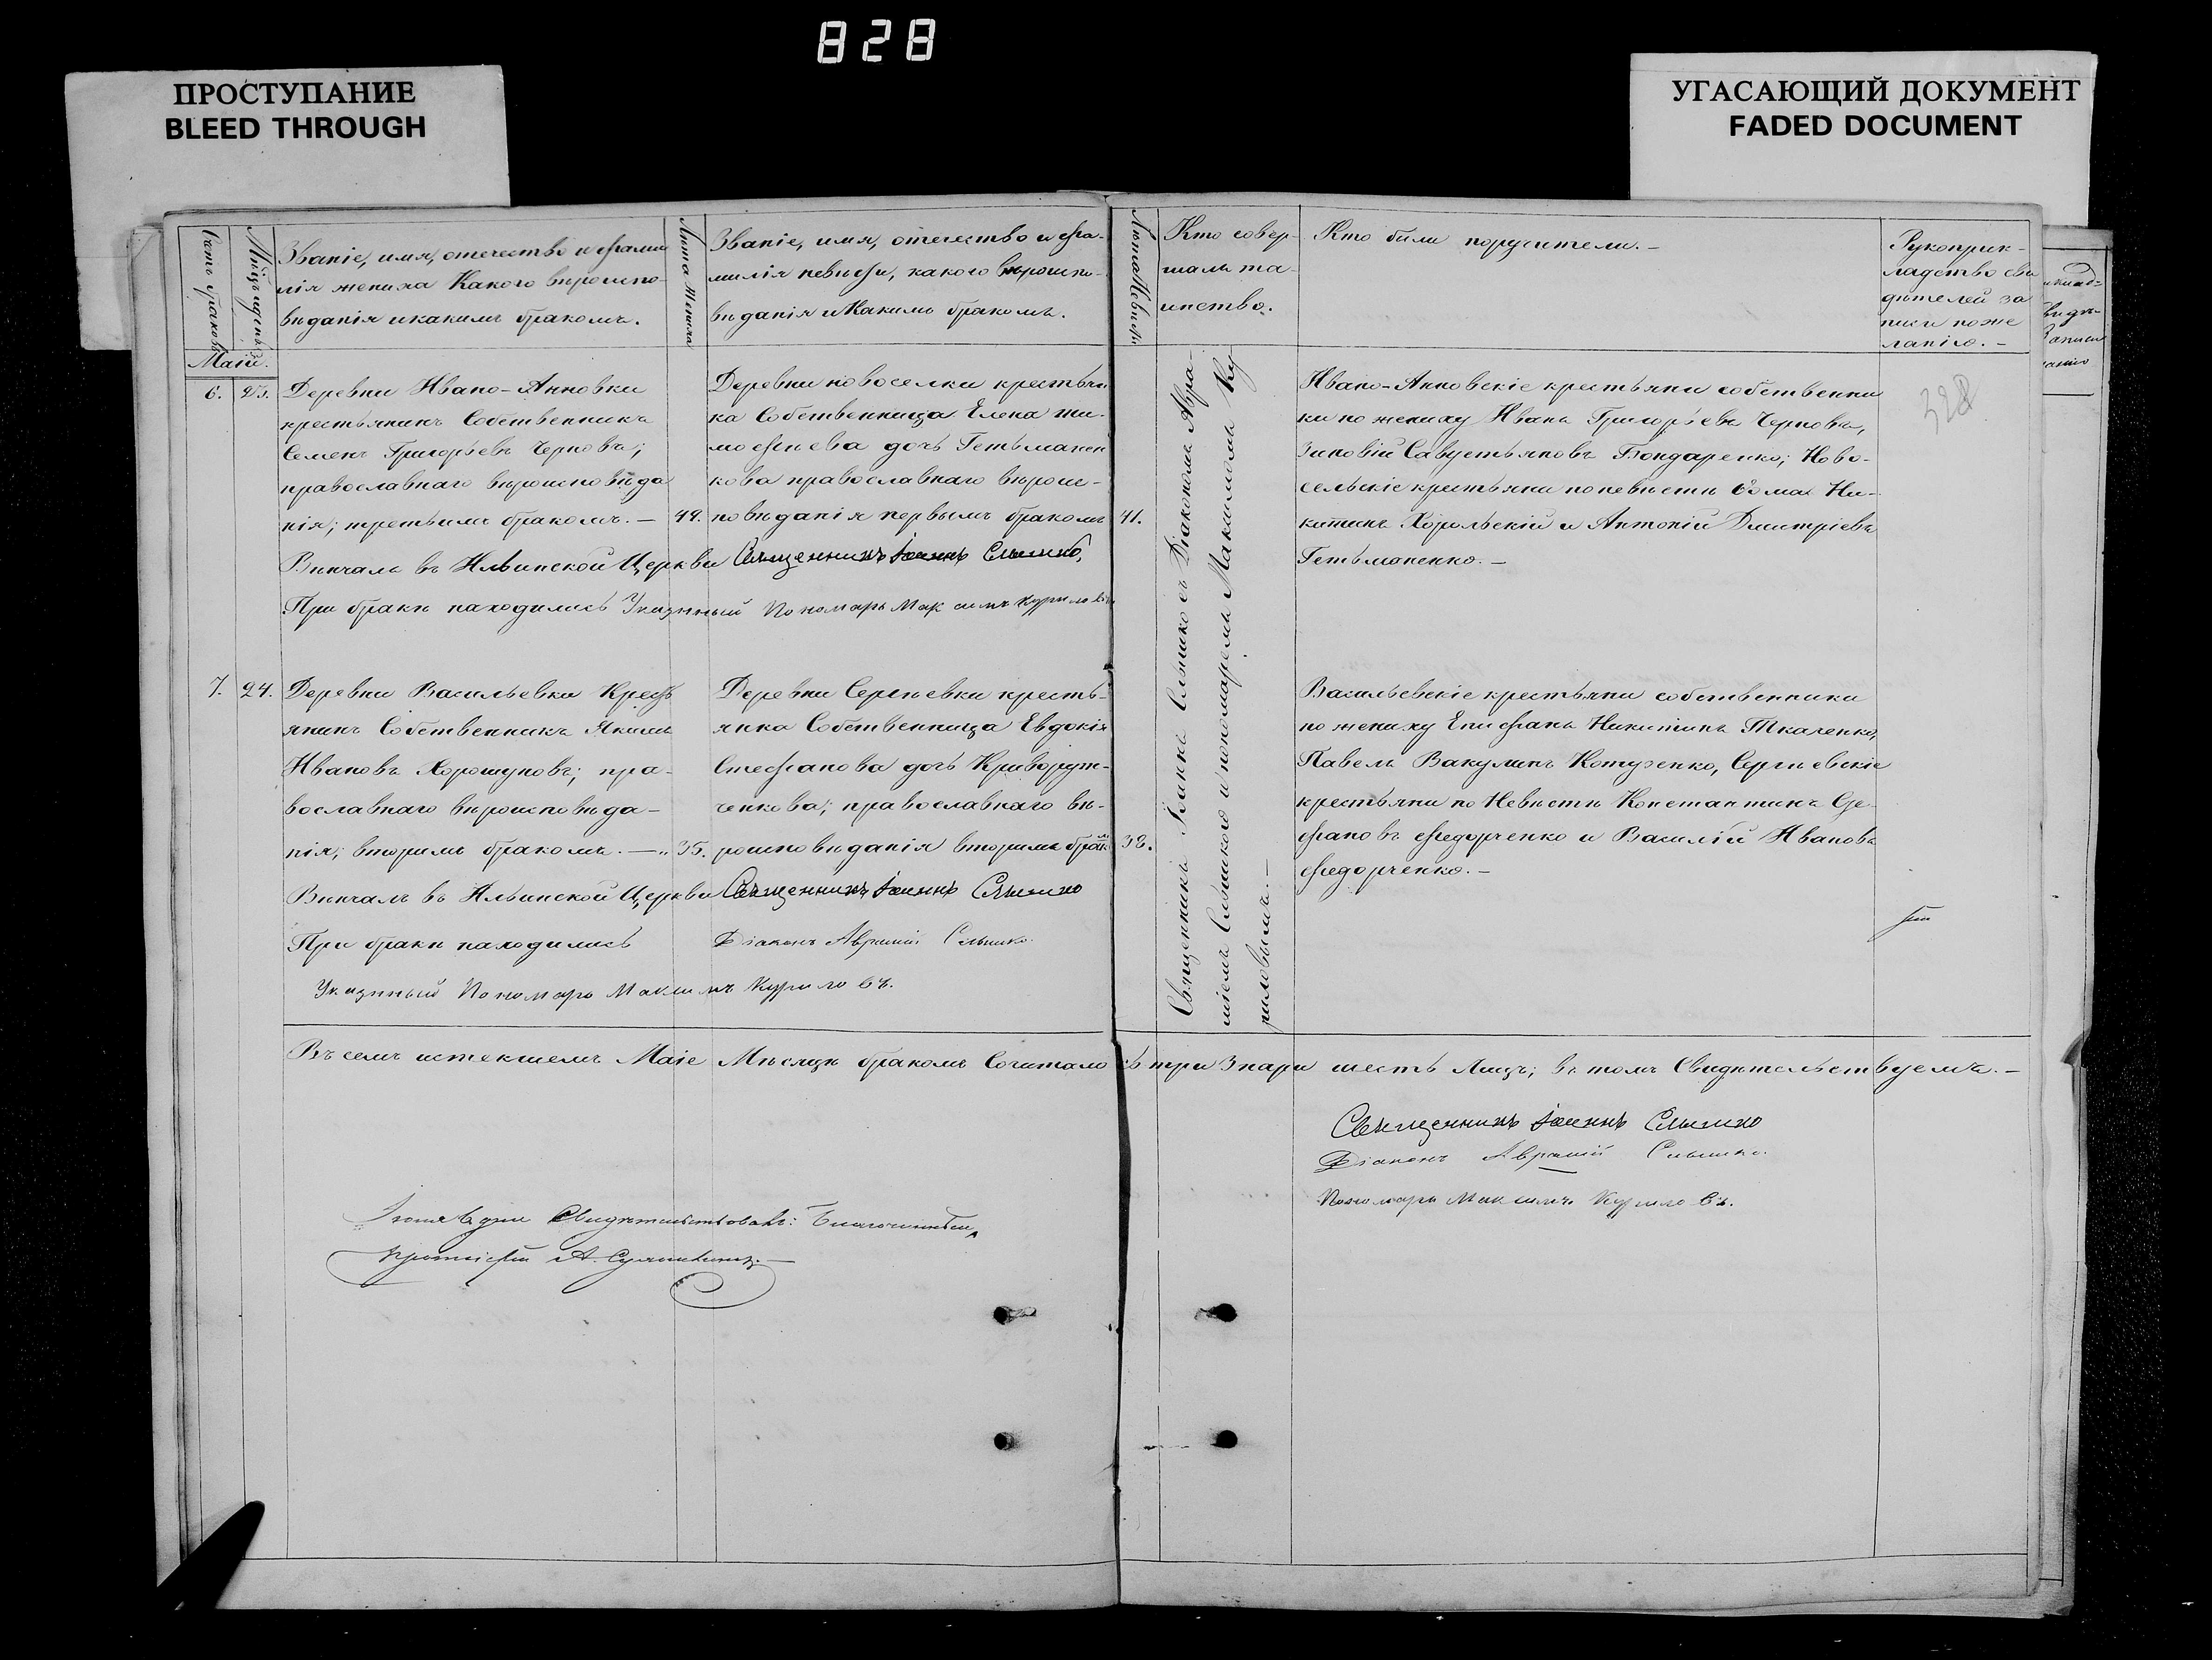 828
ПРОСТУПАНИЕ
BLEED THROUGH
УГАСАЮЩИЙ ДОКУМЕНТ
FADED DOCUMENT
Счетъ браковъ
Мѣсяцъ и день
Званіе, имя, отечество и фами
лія жениха Какого вѣроиспо-
вѣданія и какимъ бракомъ.
Лѣта Жениха
Званіе, имя, отечество и фа-
милія невѣсты, какого вѣроиспо-
вѣданія и Какимъ бракомъ.
Лѣта Невѣсты
Кто совер-
шалъ та-
инство.
Кто были поручители.-
Рукоприк-
ладство сви
дѣтелей за
писи по же
ланію.-
Маій.
6. 25.
Деревни Ивано-Анновки
крестьянинъ Собственникъ
Семенъ Григорьевъ Черновъ;
православнаго вѣроисповѣда
нія; третьимъ бракомъ.-
49.
Деревни новоселки крестьян
ка Собственница Елена Ти-
мофеева дочь Гетьманен
кова православнаго вѣроис-
повѣданія первымъ бракомъ
41.
Ивано-Анновскіе крестьяни собственни
ки по жениху Иванъ Григорьевъ Черновъ,
Зиновій Савустьяновъ Бондаренко; Ново-
сельскіе крестьяни по невѣсти Фома Ни-
китинъ Хорольскій и Антоній Дмитріевъ
Гетьманенко.-
328
Вѣнчалъ въ Ильинской Церкви Священникъ Іоаннъ Слышко,
При браки находились Указнный Пономарь Максимъ Куриловъ
7. 24.
Деревни Васильевки Кресть
янинъ Собственникъ Якимъ
Ивановъ Хорошуновъ; пра-
вославнаго вѣроисповѣда-
нія; вторимъ бракомъ.-
35.
Деревни Сергѣевки кресть-
янка Собственница Евдокія
Стефанова дочь Криворуч-
ченкова; православнаго вѣ-
роисповѣданія вторимъ брак
38.
Священникъ Іоаннъ Слышко съ Діакономъ Авра-
міемъ Слышкого и пономаремъ Максимомъ Ку
риловымъ.-
Васильевскіе крестьяни собственники
по жениху Епифанъ Никитинъ Ткаченко,
Павелъ Вакулинъ Котузенко, Сергѣевскіе
крестьяни по Невѣсти Константинъ Сте
фановъ Федорченко и Василій Ивановъ
Федорченко.-
Вѣнчалъ въ Ильинской Церкви Священникъ Іоаннъ Слышко
При браки находились Діаконъ Аврамій Слышко.
Указнный Пономарь Максимъ Куриловъ.
Въ семъ истекшемъ Маіе Мѣсяцѣ бракомъ Сочиталось три 3 пари шесть Лицъ; въ томъ Свидѣтельствуемъ.-
Священникъ Іоаннъ Слышко
Діаконъ Аврамій Слышко.
Пономарь Максимъ Куриловъ.
Свидѣтельствовалъ: Благочинный
Протоіерей А.